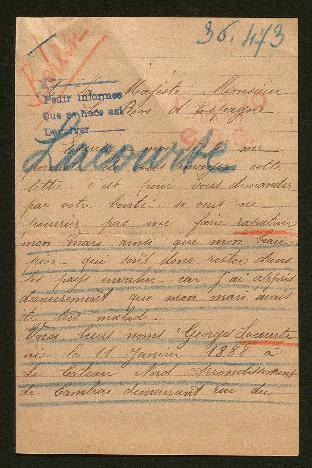 36.473
Berlin
Pedir informes
Que se hace así
Devolver
Majesté Monsieur
le Roi d'Espagne
Lacourte
me
cette
lettre c'est pour vous demander
par votre bonté si vous ne
pourriez pas me faire rapatrier
mon mari ainsi que mon beau
frère qui sont donc restés dans
les pays envahis car j'ai appris
dernièrement que mon mari avait
été très malade.
Voici leurs noms Georges Lacourte
né le 11 Janvier 1888 à
Le Cateau Nord Arrondissement
de Cambrai demeurant rue du